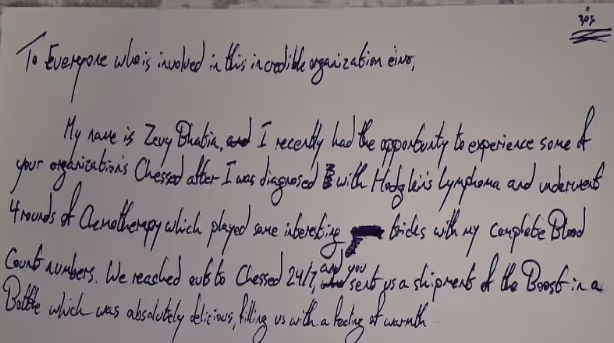 בס"ד
To Everyone who is involved in this incredible organization
My name is Zevy Bhatia, and I recently had the opportunity to experience some of
your organizations Chessed after I was diagnosed with Hodgkin's Lymphoma and underwent
4 rounds of Chemotherapy which played some interesting trides with my complete Blood
Count numbers. We reached out to Chessed 24/7, and you sent us a shipment of the Boost in a
Bottle which was absolutely delicious, filling us with a feeling of warmth